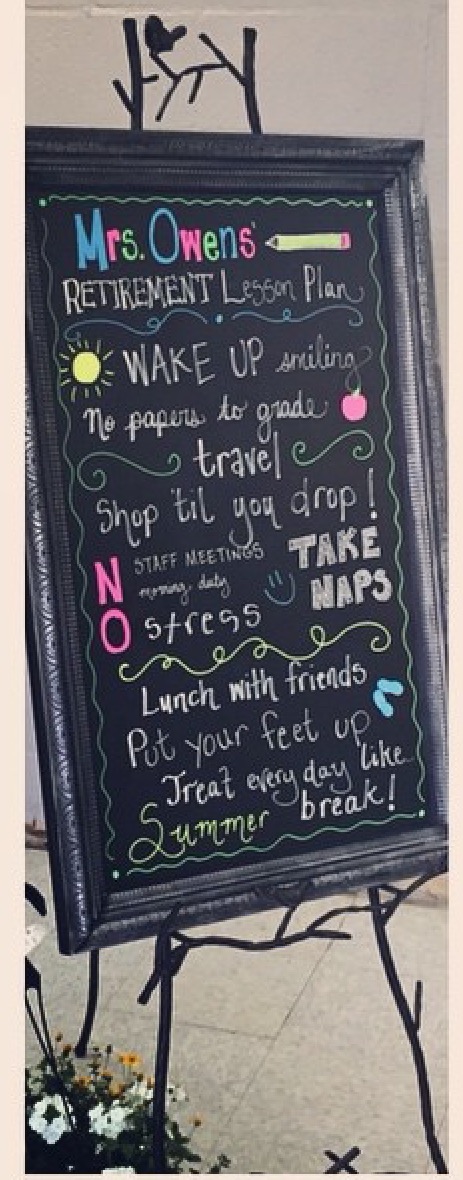 Mrs. Owens'
RETIREMENT Lesson Plan
WAKE UP smiling
No papers to grade
travel
Shop 'til you drop!
NO
STAFF MEETINGS
morning duty
stress
TAKE
NAPS
Lunch with friends
Put your feet up
Treat every day like
Summer break!